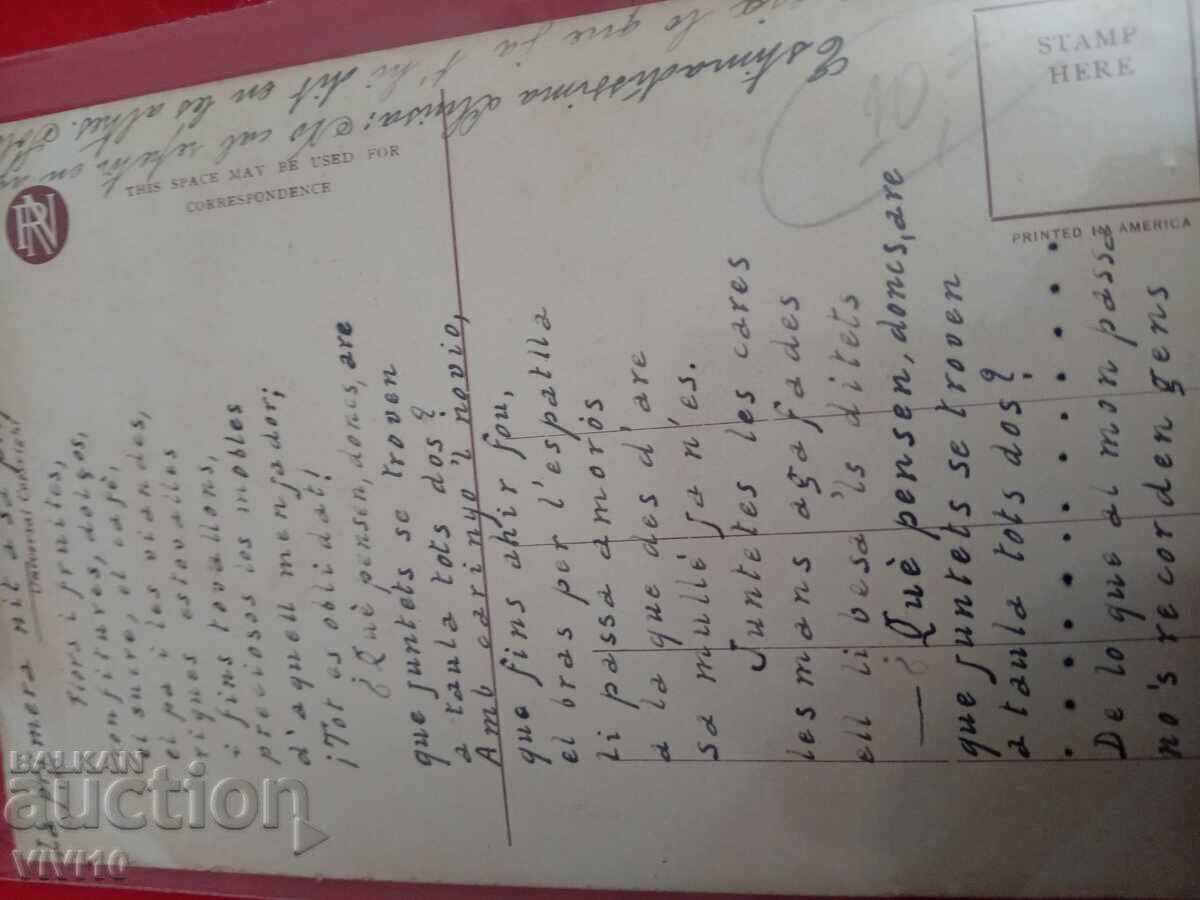 STAMP
HERE
PRINTED IN AMERICA
THIS SPACE MAY BE USED FOR
CORRESPONDENCE
RN
Estimadíssima Lluisa: No cal repetir en
lo que ja t'hi dit en les altres.
la primera nit
flors i fruites,
confitures, dolços,
el sucre, el cafè,
el pa i les viandes,
riques estovalles
i fins tovallons,
preciosos los mobles
d'aquell menjador;
¡Tot es oblidat!
¿Què pensen, doncs, are
que juntets se troven
a taula tots dos?
Amb carinyo 'l novio,
que fins ahir fou,
el bras per l'espatlla
li passa amorós
a la que des d'are
sa mullé ja n'es.
Juntets les cares
les mans agafades
ell li besa 'ls ditets
— ¿Què pensen, doncs, are
que juntets se troven
a taula tots dos?
. . . . . . . . . . . .
De lo que al mon passa
no's recorden gens
BALKAN
auction
VIVI10